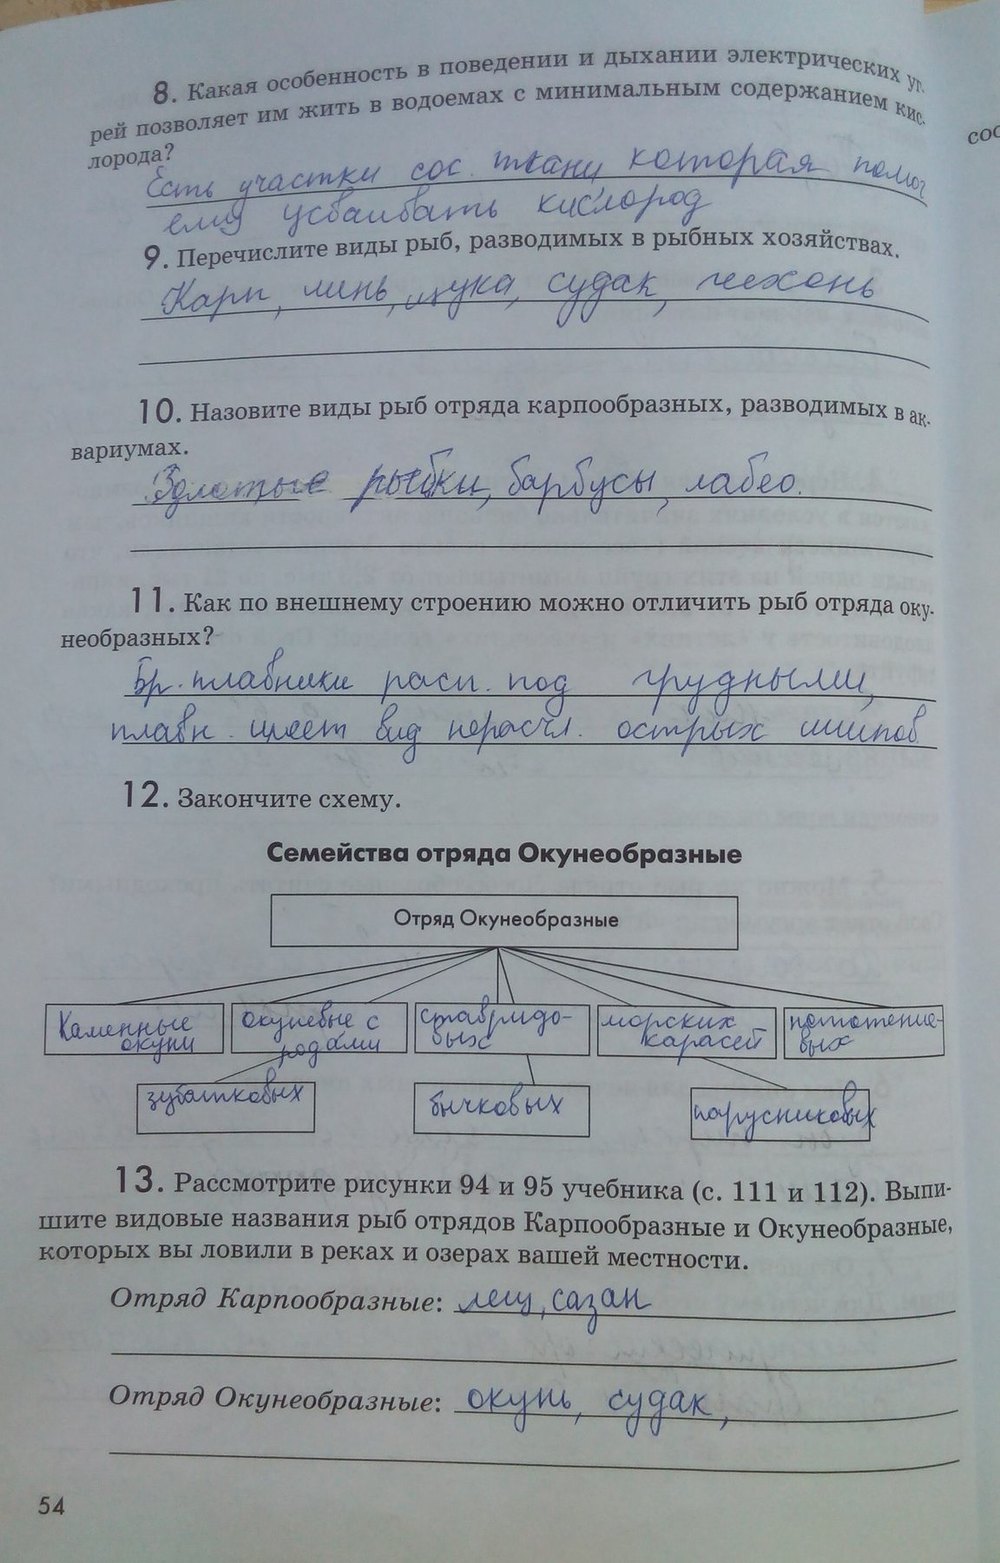 8. Какая особенность в поведении и дыхании электрических уг-
рей позволяет им жить в водоемах с минимальным содержанием кис-
лорода?
Есть участки сос. ткани которая помог
ему усваивать кислород
9. Перечислите виды рыб, разводимых в рыбных хозяйствах.
Карп, линь, щука, судак, чехонь
10. Назовите виды рыб отряда карпообразных, разводимых в ак-
вариумах.
Золотые рыбки, барбусы, лабео.
11. Как по внешнему строению можно отличить рыб отряда оку-
необразных?
Бр. плавники расп. под грудными,
плавн. имеет вид нерасчл. острых шипов
12. Закончите схему.
Семейства отряда Окунеобразные
Отряд Окунеобразные
Каменные окуни
окуневые с родами
ставридо-
вых
морских карасей
зубатковых
бычковых
парусниковых
13. Рассмотрите рисунки 94 и 95 учебника (с. 111 и 112). Выпи-
шите видовые названия рыб отрядов Карпообразные и Окунеобразные,
которых вы ловили в реках и озерах вашей местности.
Отряд Карпообразные: лещ, сазан
Отряд Окунеобразные: окунь, судак,
54
сос